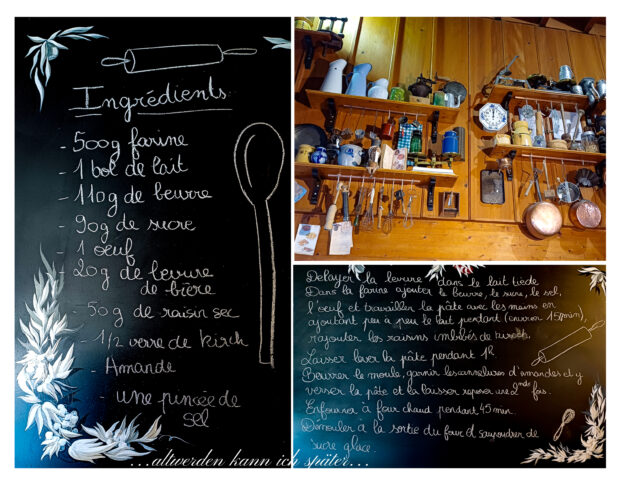 Ingrédients
- 500g farine
- 1 bol de lait
- 110g de beurre
- 90g de sucre
- 1 œuf
- 20g de levure
de bière
- 50g de raisin sec
- 1/2 verre de kirch
- Amande
- une pincée de
sel
Délayer la levure dans le lait tiède
Dans la farine ajouter le beurre, le sucre, le sel,
l'œuf et travailler la pâte avec les mains en
ajoutant peu à peu le lait pendant (environ 15min),
rajouter les raisins imbibés de
Laisser lever la pâte pendant 1h
Beurrer le moule, garnir les cannelures d'amandes et y
verser la pâte et la laisser reposer une 2nde fois.
Enfourner à four chaud pendant 45 min.
Démouler à la sortie du four et saupoudrer de
sucre glace.
...altwerden kann ich später...